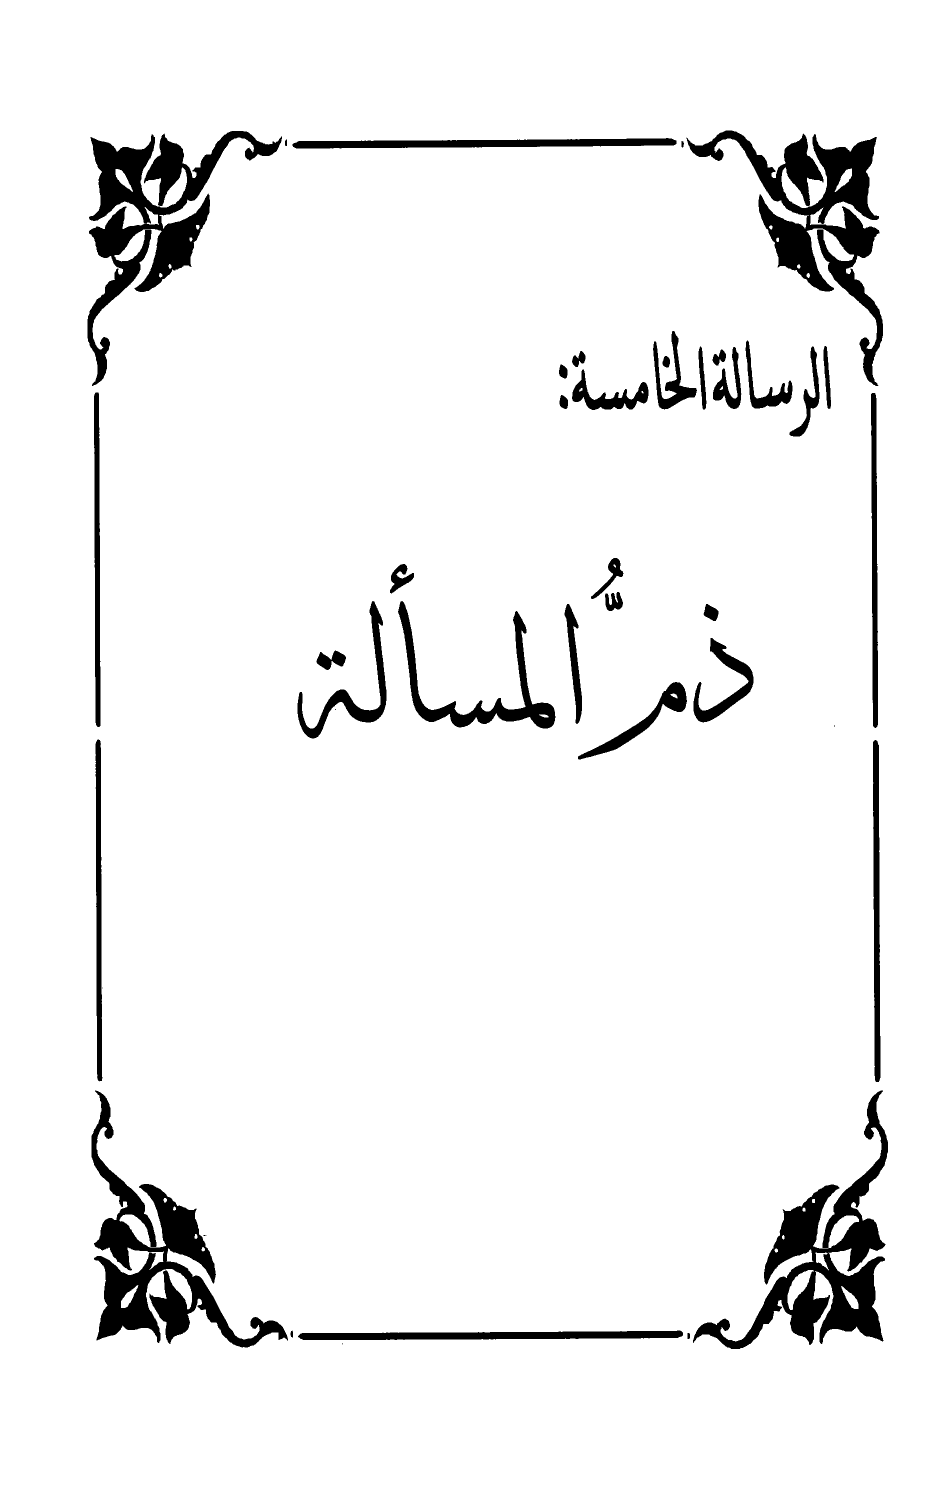 الرسالة الخامسة:
ذمُّ المسألة